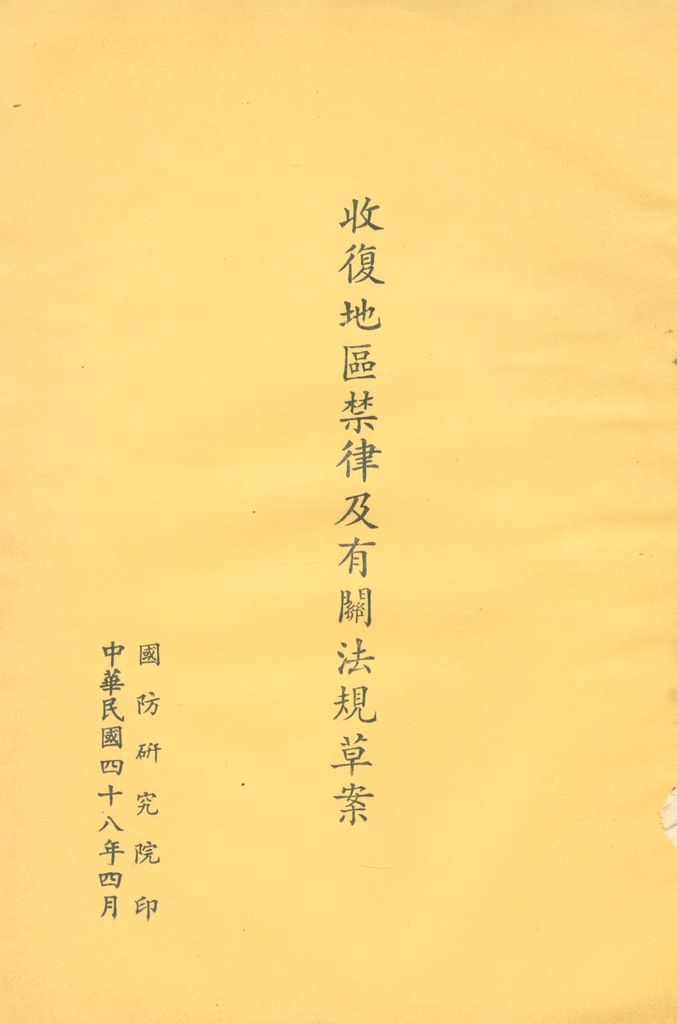 收復地區禁律及有關法規草案
國防研究院印
中華民國四十八年四月